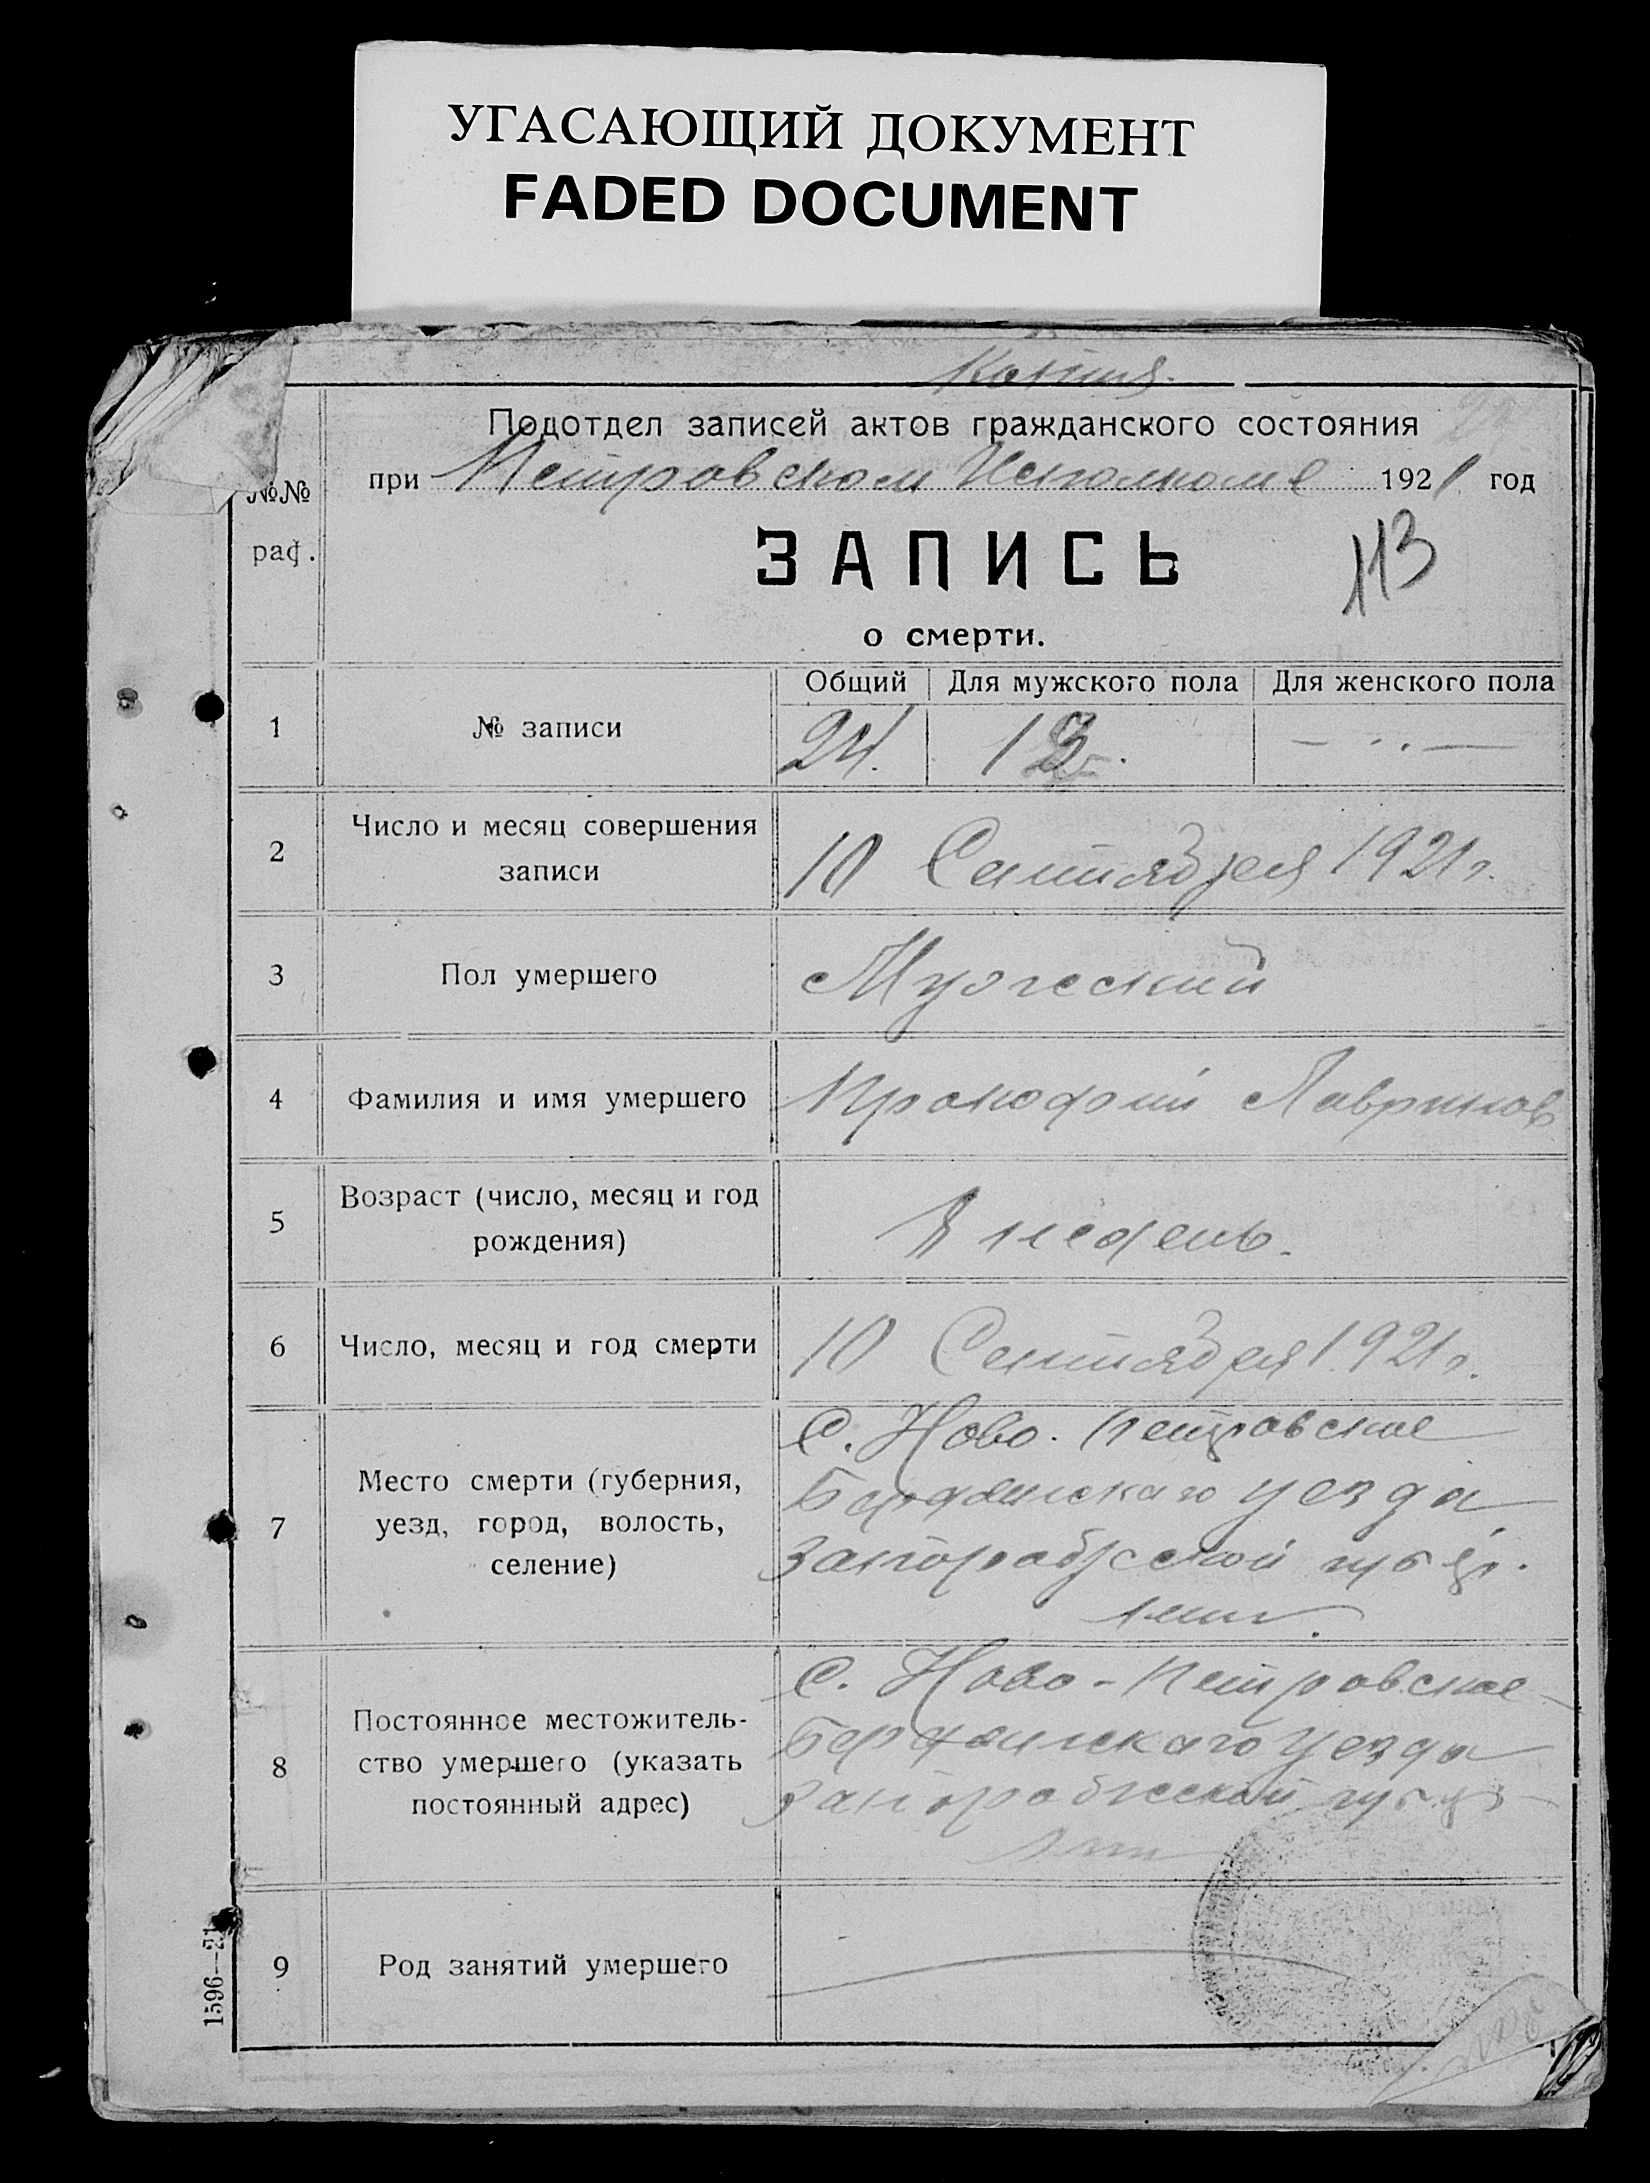 УГАСАЮЩИЙ ДОКУМЕНТ
FADED DOCUMENT
Копия.
Подотдел записей актов гражданского состояния
при Петровском Исполкоме 1921 год
№№
раф.
113
ЗАПИСЬ
о смерти.
Общий Для мужского пола Для женского пола
1 № записи 24. 13.
2 Число и месяц совершения
записи
10 Сентября 1921 г.
3 Пол умершего Мужеский
4 Фамилия и имя умершего Прокофий Лавринов
5 Возраст (число, месяц и год
рождения)
8 недель.
6 Число, месяц и год смерти 10 Сентября 1921 г.
7 Место смерти (губерния,
уезд, город, волость,
селение)
С. Ново-Петровское
Бердянскаго уезда
8 Постоянное местожитель-
ство умершего (указать
постоянный адрес)
С. Ново-Петровское
Бердянскаго уезда
9 Род занятий умершего
1596—21